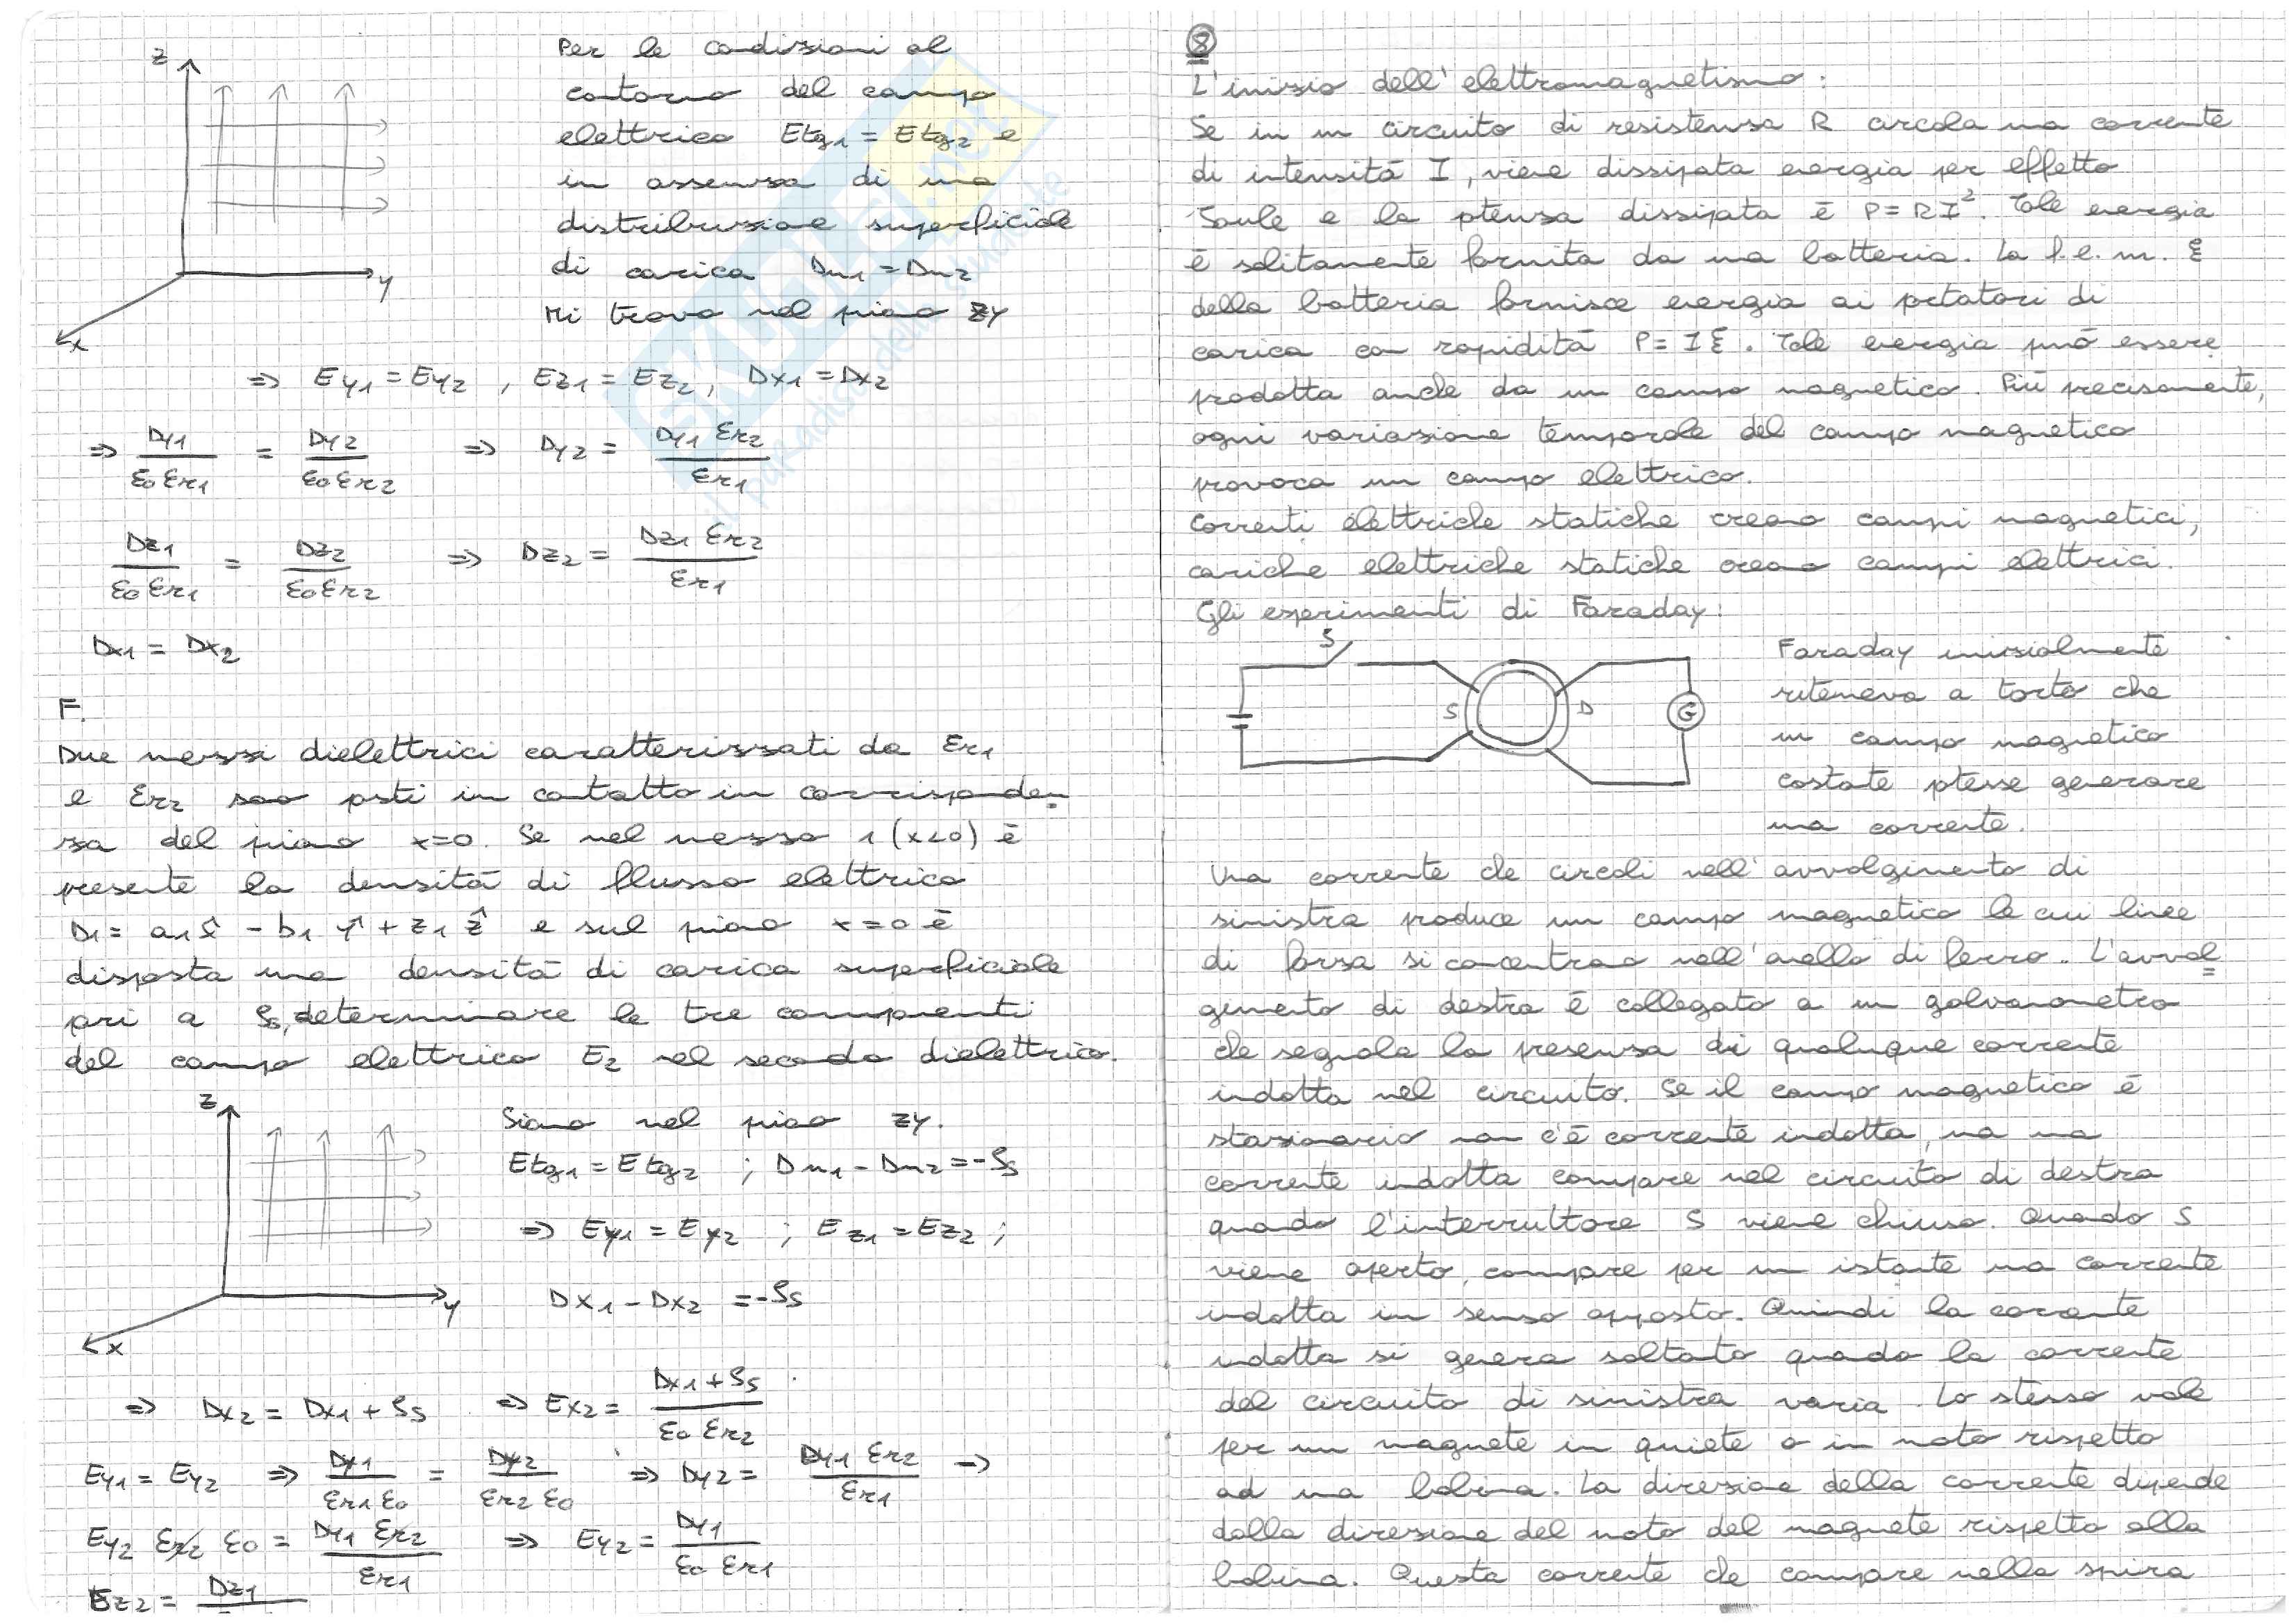 z
y
x
Per le condizioni al
contorno del campo
elettrico Etg1 = Etg2 e
in assenza di una
distribuzione superficiale
di carica Dn1 = Dn2
Mi trovo nel piano zy
=> Ey1 = Ey2 , Ez1 = Ez2 , Dx1 = Dx2
=> Dy1 / ε0 εr1 = Dy2 / ε0 εr2 => Dy2 = Dy1 εr2 / εr1
Dz1 / ε0 εr1 = Dz2 / ε0 εr2 => Dz2 = Dz1 εr2 / εr1
Dx1 = Dx2
F.
Due mezzi dielettrici caratterizzati da εr1
e εr2 sono posti in contatto in corrisponden
za del piano x=0. Se nel mezzo 1 (x<0) è
presente la densità di flusso elettrico
D1 = a1 x̂ - b1 ŷ + z1 ẑ e sul piano x=0 è
disposta una densità di carica superficiale
pari a ρs, determinare le tre componenti
del campo elettrico E2 nel secondo dielettrico.
z
y
x
Siamo nel piano zy.
Etg1 = Etg2 ; Dn1 - Dn2 = -ρs
=> Ey1 = Ey2 ; Ez1 = Ez2 ;
Dx1 - Dx2 = -ρs
=> Dx2 = Dx1 + ρs => Ex2 = Dx1 + ρs / ε0 εr2
Ey1 = Ey2 => Dy1 / εr1 ε0 = Dy2 / εr2 ε0 => Dy2 = Dy1 εr2 / εr1 ->
Ey2 εr2 ε0 = Dy1 εr2 / εr1 => Ey2 = Dy1 / ε0 εr1
Ez2 = Dz1
8
L'inizio dell'elettromagnetismo:
Se in un circuito di resistenza R circola una corrente
di intensità I, viene dissipata energia per effetto
Joule e la potenza dissipata è P=RI². Tale energia
è solitamente fornita da una batteria. La f.e.m. ξ
della batteria fornisce energia ai portatori di
carica con rapidità P= I ξ. Tale energia può essere
prodotta anche da un campo magnetico. Più precisamente,
ogni variazione temporale del campo magnetico
provoca un campo elettrico.
Correnti elettriche statiche creano campi magnetici,
cariche elettriche statiche creano campi elettrici.
Gli esperimenti di Faraday:
S
S
D
G
Faraday inizialmente
riteneva a torto che
un campo magnetico
costante potesse generare
una corrente.
Una corrente che circoli nell'avvolgimento di
sinistra produce un campo magnetico le cui linee
di forza si concentrano nell'anello di ferro. L'avvol
gimento di destra è collegato a un galvanometro
che segnala la presenza di qualunque corrente
indotta nel circuito. Se il campo magnetico è
stazionario non c'è corrente indotta, ma una
corrente indotta compare nel circuito di destra
quando l'interruttore S viene chiuso. Quando S
viene aperto, compare per un istante una corrente
indotta in senso opposto. Quindi la corrente
indotta si genera soltanto quando la corrente
del circuito di sinistra varia. Lo stesso vale
per un magnete in quiete o in moto rispetto
ad una bobina. La direzione della corrente dipende
dalla direzione del moto del magnete rispetto alla
bobina. Questa corrente che compare nella spira